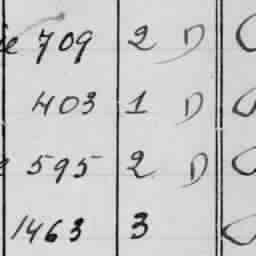 709 2 D
403 1 D
595 2 D
1463 3